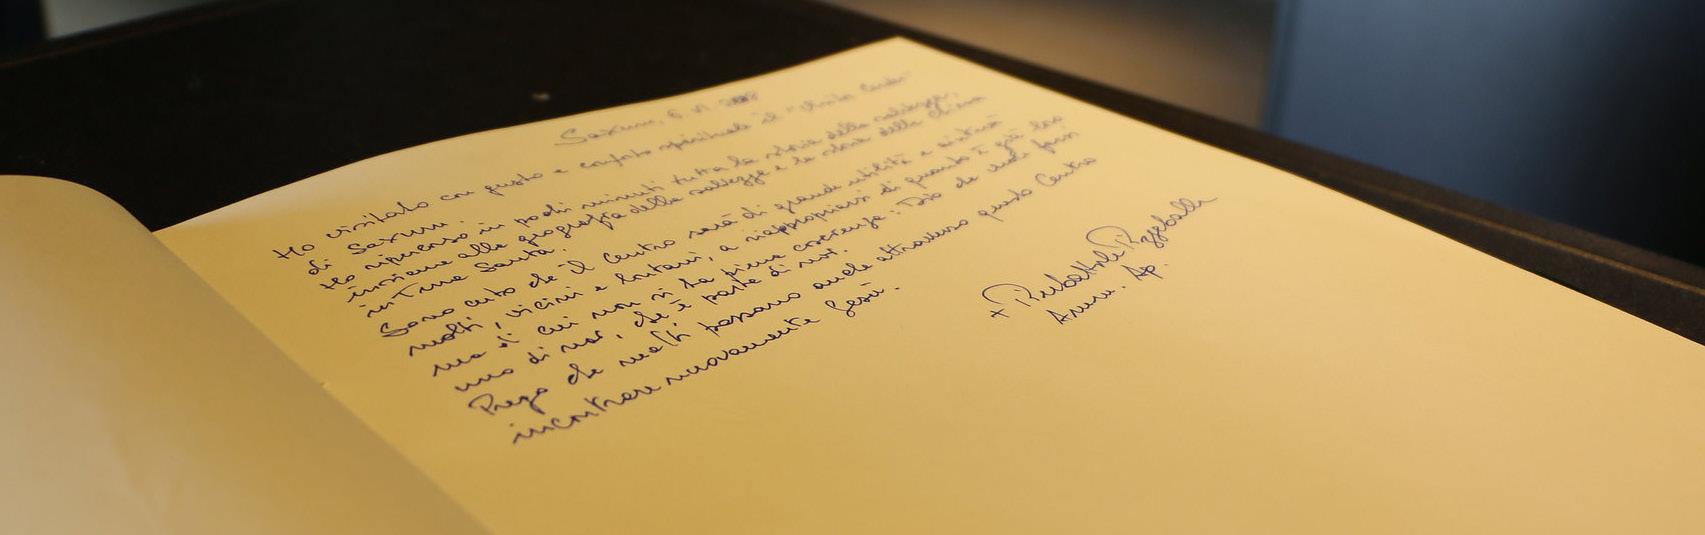 Saxum, 6 VI 2018
Ho visitato con gusto e conforto spirituale il "Visita Center"
di Saxum.
Ho ripercorso in pochi minuti tutta la storia della salvezza,
insieme alla geografia della salvezza e la storia della Chiesa
in Terra Santa.
Sono certo che il Centro sarà di grande utilità e aiuterà
molti, vicini e lontani, a riappropriarsi di quanto è già loro
ma di cui non si ha piena coscienza: Dio che vuol farsi
uno di noi, che è parte di noi.
Prego che molti possano anche attraverso questo Centro
incontrare nuovamente Gesù.
+ Pierbattista Pizzaballa
Amm. Ap.